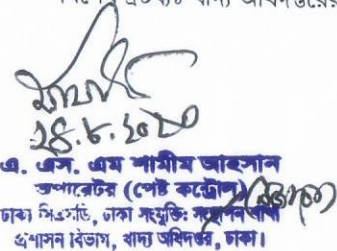 খাদ্য অধিদপ্তরের
২৪.৮.২০২০
এ. এস. এম শামীম আহসান
অপারেটর (পেষ্ট কন্ট্রোল)
ঢাকা সিএসডি, ঢাকা সংযুক্তি: সংস্থাপন শাখা
প্রশাসন বিভাগ, খাদ্য অধিদপ্তর, ঢাকা।